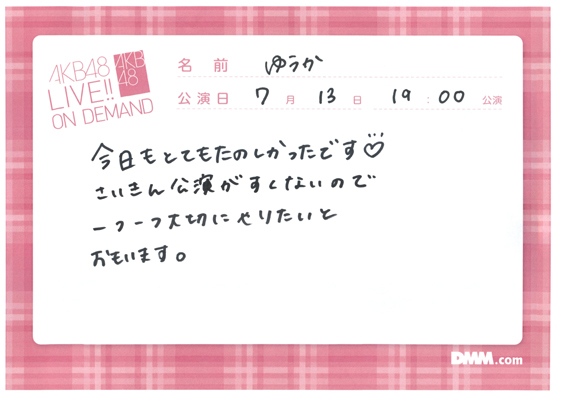 AKB48
LIVE!!
ON DEMAND
AKB
48
名前 ゆうか
公演日 7月 13日 19:00 公演
今日もとてもたのしかったです♡
さいきん公演がすくないので
一つ一つ大切にやりたいと
おもいます。
DMM.com